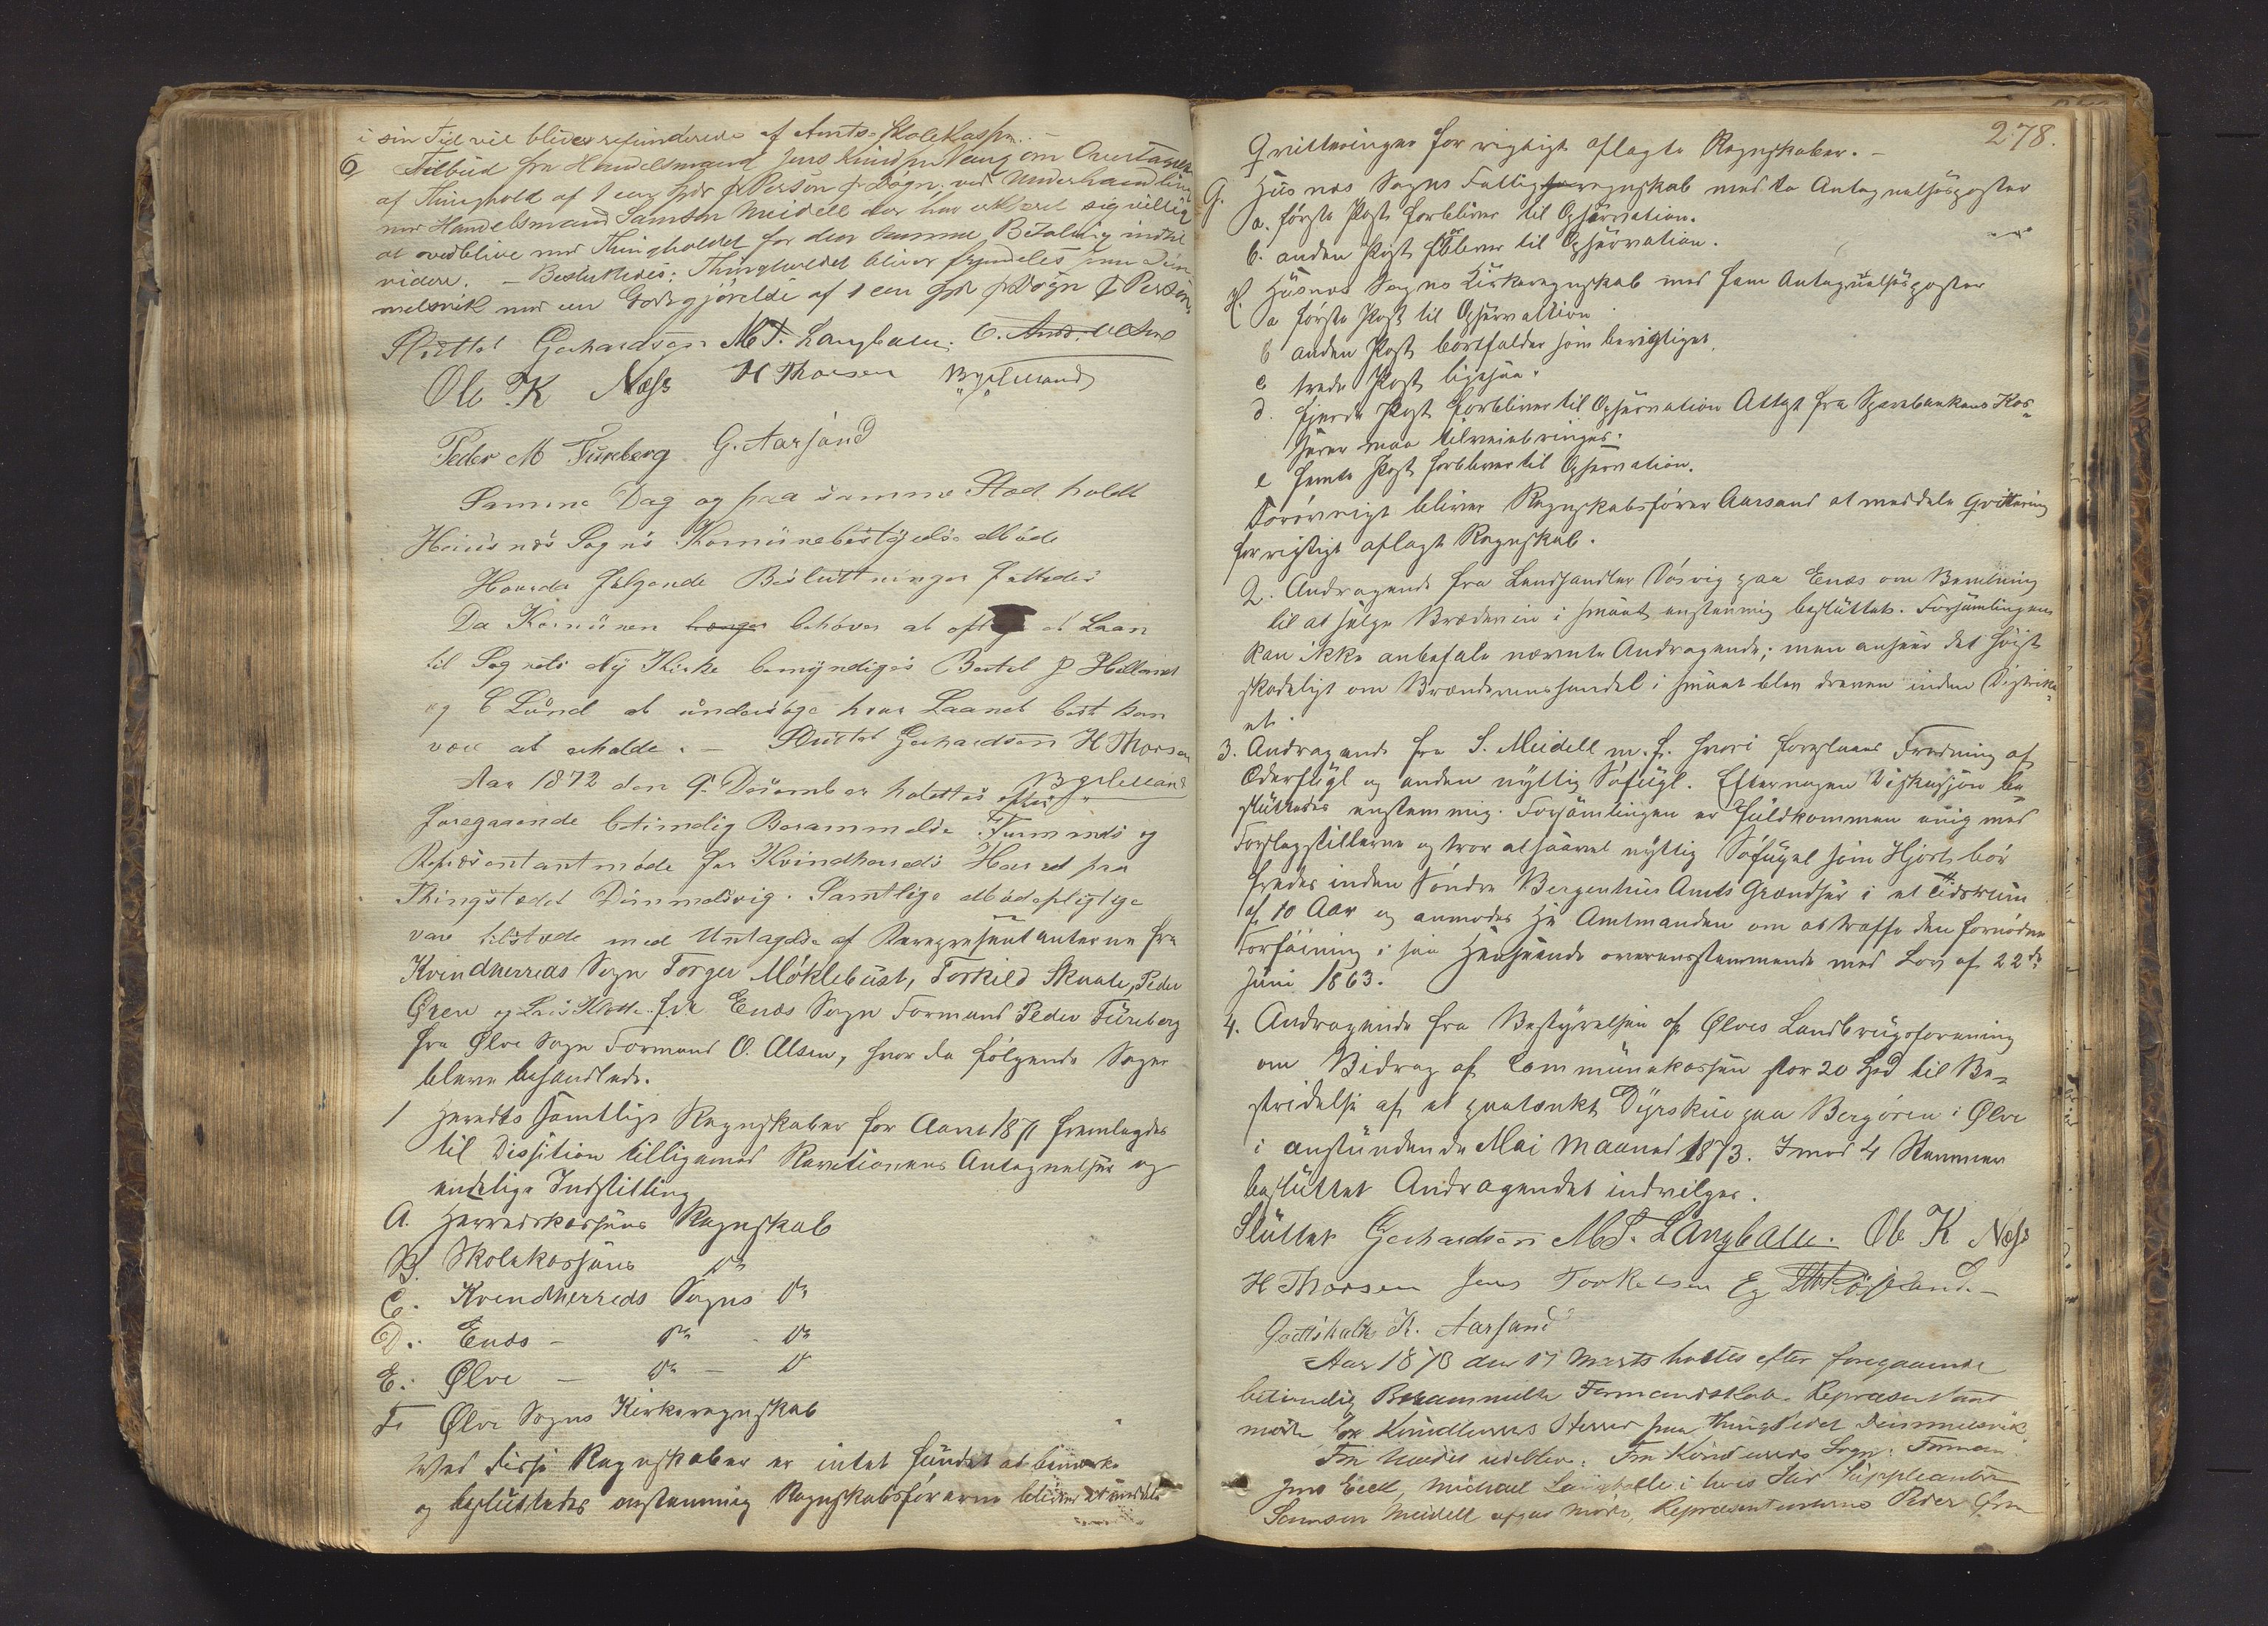 i sin Tid vil blive refunderede af Amts-Skolekassen. -
6 Tilbud fra Handelsmand Jens om Overtagelse
af Thinghold af 1 en Spd pr Person pr Døgn, ved Underhandling
med Handelsmand Samson Meidell der har erklæret sig villig
at vedblive med Thingholdet for den samme Betaling indtil
videre. - Besluttedes: Thingholdet bliver fremdeles paa Dim-
melsvik med en Godtgjørelse af 1 en Spd pr Døgn pr Person.
Sluttet Gerhardsen M T. Langballe. O.
Ole K Næss H Thorsen
Peder M Fureberg G. Aarsand
Samme Dag og paa samme Sted holdt
Huusnes Sogns Komunebestyrelse Møde
Hvorda følgende Beslutninger fattedes
Da Komunen behøver at et Laan
til Sognets Ny Kirke bemyndiges Bertel J Helland
og C Lund at undersøge hvor Laanet best kan
være at erholde. - Sluttet Gerhardsen H Thorsen
Aar 1872 den 9. Desember holdttes efter
foregaaende betimelig Berammelse Formends og
Representantmøde for Kvindherreds Herred paa
Thingstedet Dimmelsvig. Samtlige Mødepligtige
vare tilstede med Untagelse af Representanterne fra
Kvindherreds Sogn Torger Møklebust, Torkild Skaale, Peder
Øren og Lars fra Enæs Sogn Formand Peder Fureberg
fra Ølve Sogn Formand O. Olsen, hvor da følgende Sager
bleve behandlede.
1 Heredts samtlige Regnskaber for Aaret 1871 fremlagdes
til Dissition tilligemed Revitionens Antegnelser og
endelige Indstilling
A. Herredskassens Regnskab
B. Skolekassens Do
C. Kvendherreds Sogns Do
D. Enæs - Do - Do
E. Ølve - Do - Do
F. Ølve Sogns Kirkeregnskab
Ved disse Regnskaber er intet fundet at bemærke
og besluttedes enstemmig Regnskabsførerne bliver at meddele
278.
Qvitteringer for rigtigt aflagte Regnskaber. -
G. Husnæs Sogns Fattigregnskab med to Antegnelsesposter
a. første Post forbliver til Opservation.
b. anden Post forbliver til Opservation.
H. Husnæs Sogns Kirkeregnskab med fem Antegnelsesposter
a første Post til Opservation
b anden Post bortfalder som berigtiget.
c tredie Post ligesaa.
d. fjerde Post forbliver til Opservation Attest fra Sparebankens Kas-
serer maa tilveiebringes.
e femte Post forbliver til Opservation.
Forøvrigt bliver Regnskabsfører Aarsand at meddele Qvittering
for rigtigt aflagt Regnskab.
2. Andragende fra Landhandler Døsvig paa Enæs om Bevilning
til at sælge Brædevin i smaat enstemmig besluttet. Forsamlingen
kan ikke anbefale nævnte Andragende; men anseer det høist
skadeligt om Brændevinshandel i smaat blev dreven inden Distrik-
et.
3. Andragende fra S. Meidell m. f. hvori forslaaes Fredning af
Ederfugl og anden nyttig Søfugl. Efter nogen Diskusjon be-
sluttedes enstemmig. Forsamlingen er fuldkommen enig med
Forslagstillerne og tror at saavel nyttig Søfugl som Hjort bør
fredes inden Søndre Bergenhus Amts Grændser i et Tidsrum
af 10 Aar og anmodes Hr Amtmanden om at træffe den fornødne
Forføining i saa Henseende overensstemmende med Lov af 22de
Juni 1863.
4. Andragende fra Bestyrelsen af Ølves Landbrugsforening
om Bidrag af Communekassen stor 20 Spd til Be-
stridelse af et paatænkt Dyrskue paa Bergøren i Ølve
i anstundende Mai Maaned 1873. Imod 4 Stemmer
besluttet Andragendet indvilges.
Sluttet Gerhardsen M T. Langballe. Ole K Næss
H Thorsen Jens Torkelsen
Gottskalk K. Aarsand
Aar 1873 den 17 Marts holtes efter foregaaende
betimelig Berammelse Formandskab- Representant
møde for Kvindherreds Herred paa Thingstedet Dimmelsvik
Fra Mødet udeblev: Fra Kvindherreds Sogn: Formand
Jens Eeck, Michael Langballe i hvis Sted Suppleanten
Samson Meidell afgav Møde, Representanterne Peder Øren